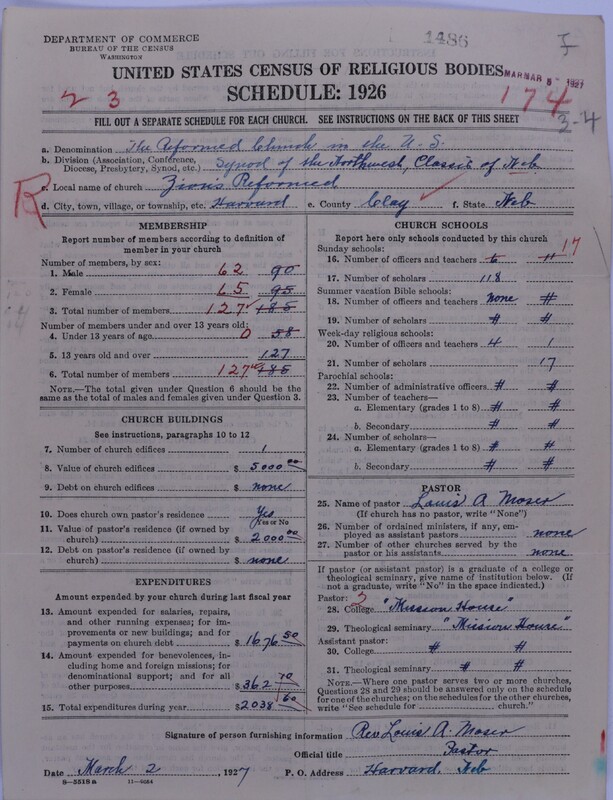 DEPARTMENT OF COMMERCE
BUREAU OF THE CENSUS
WASHINGTON
1486
UNITED STATES CENSUS OF RELIGIOUS BODIES
MAR 5 1927
SCHEDULE: 1926
2 3
174
3-4
FILL OUT A SEPARATE SCHEDULE FOR EACH CHURCH. SEE INSTRUCTIONS ON THE BACK OF THIS SHEET
a. Denomination The Reformed Church in the U.S.
b. Division (Association, Conference, Diocese, Presbytery, Synod, etc.) Synod of the Northwest, Classis of Neb
c. Local name of church Zion's Reformed
R
d. City, town, village, or township, etc. Harvard e. County Clay f. State Neb
MEMBERSHIP
Report number of members according to definition of member in your church
Number of members, by sex:
1. Male 62 90
2. Female 65 95
3. Total number of members 127 185
Number of members under and over 13 years old:
4. Under 13 years of age 0 58
5. 13 years old and over 127
6. Total number of members 127 185
NOTE.—The total given under Question 6 should be the same as the total of males and females given under Question 3.
CHURCH BUILDINGS
See instructions, paragraphs 10 to 12
7. Number of church edifices 1
8. Value of church edifices $ 5000 00
9. Debt on church edifices $ none
10. Does church own pastor's residence Yes
Yes or No
11. Value of pastor's residence (if owned by church) $ 2000 00
12. Debt on pastor's residence (if owned by church) $ none
EXPENDITURES
Amount expended by your church during last fiscal year
13. Amount expended for salaries, repairs, and other running expenses; for improvements or new buildings; and for payments on church debt $ 1676 50
14. Amount expended for benevolences, including home and foreign missions; for denominational support; and for all other purposes $ 362 10
15. Total expenditures during year $ 2038 60
CHURCH SCHOOLS
Report here only schools conducted by this church
Sunday schools: 17
16. Number of officers and teachers 6 11
17. Number of scholars 118
Summer vacation Bible schools:
18. Number of officers and teachers none #
19. Number of scholars # #
Week-day religious schools:
20. Number of officers and teachers 4 1
21. Number of scholars 17
Parochial schools:
22. Number of administrative officers # #
23. Number of teachers—
a. Elementary (grades 1 to 8) # #
b. Secondary # #
24. Number of scholars—
a. Elementary (grades 1 to 8) # #
b. Secondary # #
PASTOR
25. Name of pastor Louis A. Moser
(If church has no pastor, write "None")
26. Number of ordained ministers, if any, employed as assistant pastors none
27. Number of other churches served by the pastor or his assistants none
If pastor (or assistant pastor) is a graduate of a college or theological seminary, give name of institution below. (If not a graduate, write "No" in the space indicated.)
Pastor: 3
28. College "Mission House"
29. Theological seminary "Mission House"
Assistant pastor:
30. College # #
31. Theological seminary # #
NOTE.—Where one pastor serves two or more churches, Questions 28 and 29 should be answered only on the schedule for one of the churches; on the schedules for the other churches, write "See schedule for ______ church."
Signature of person furnishing information Rev Louis A. Moser
Official title Pastor
Date March 2, 1927 P. O. Address Harvard, Neb